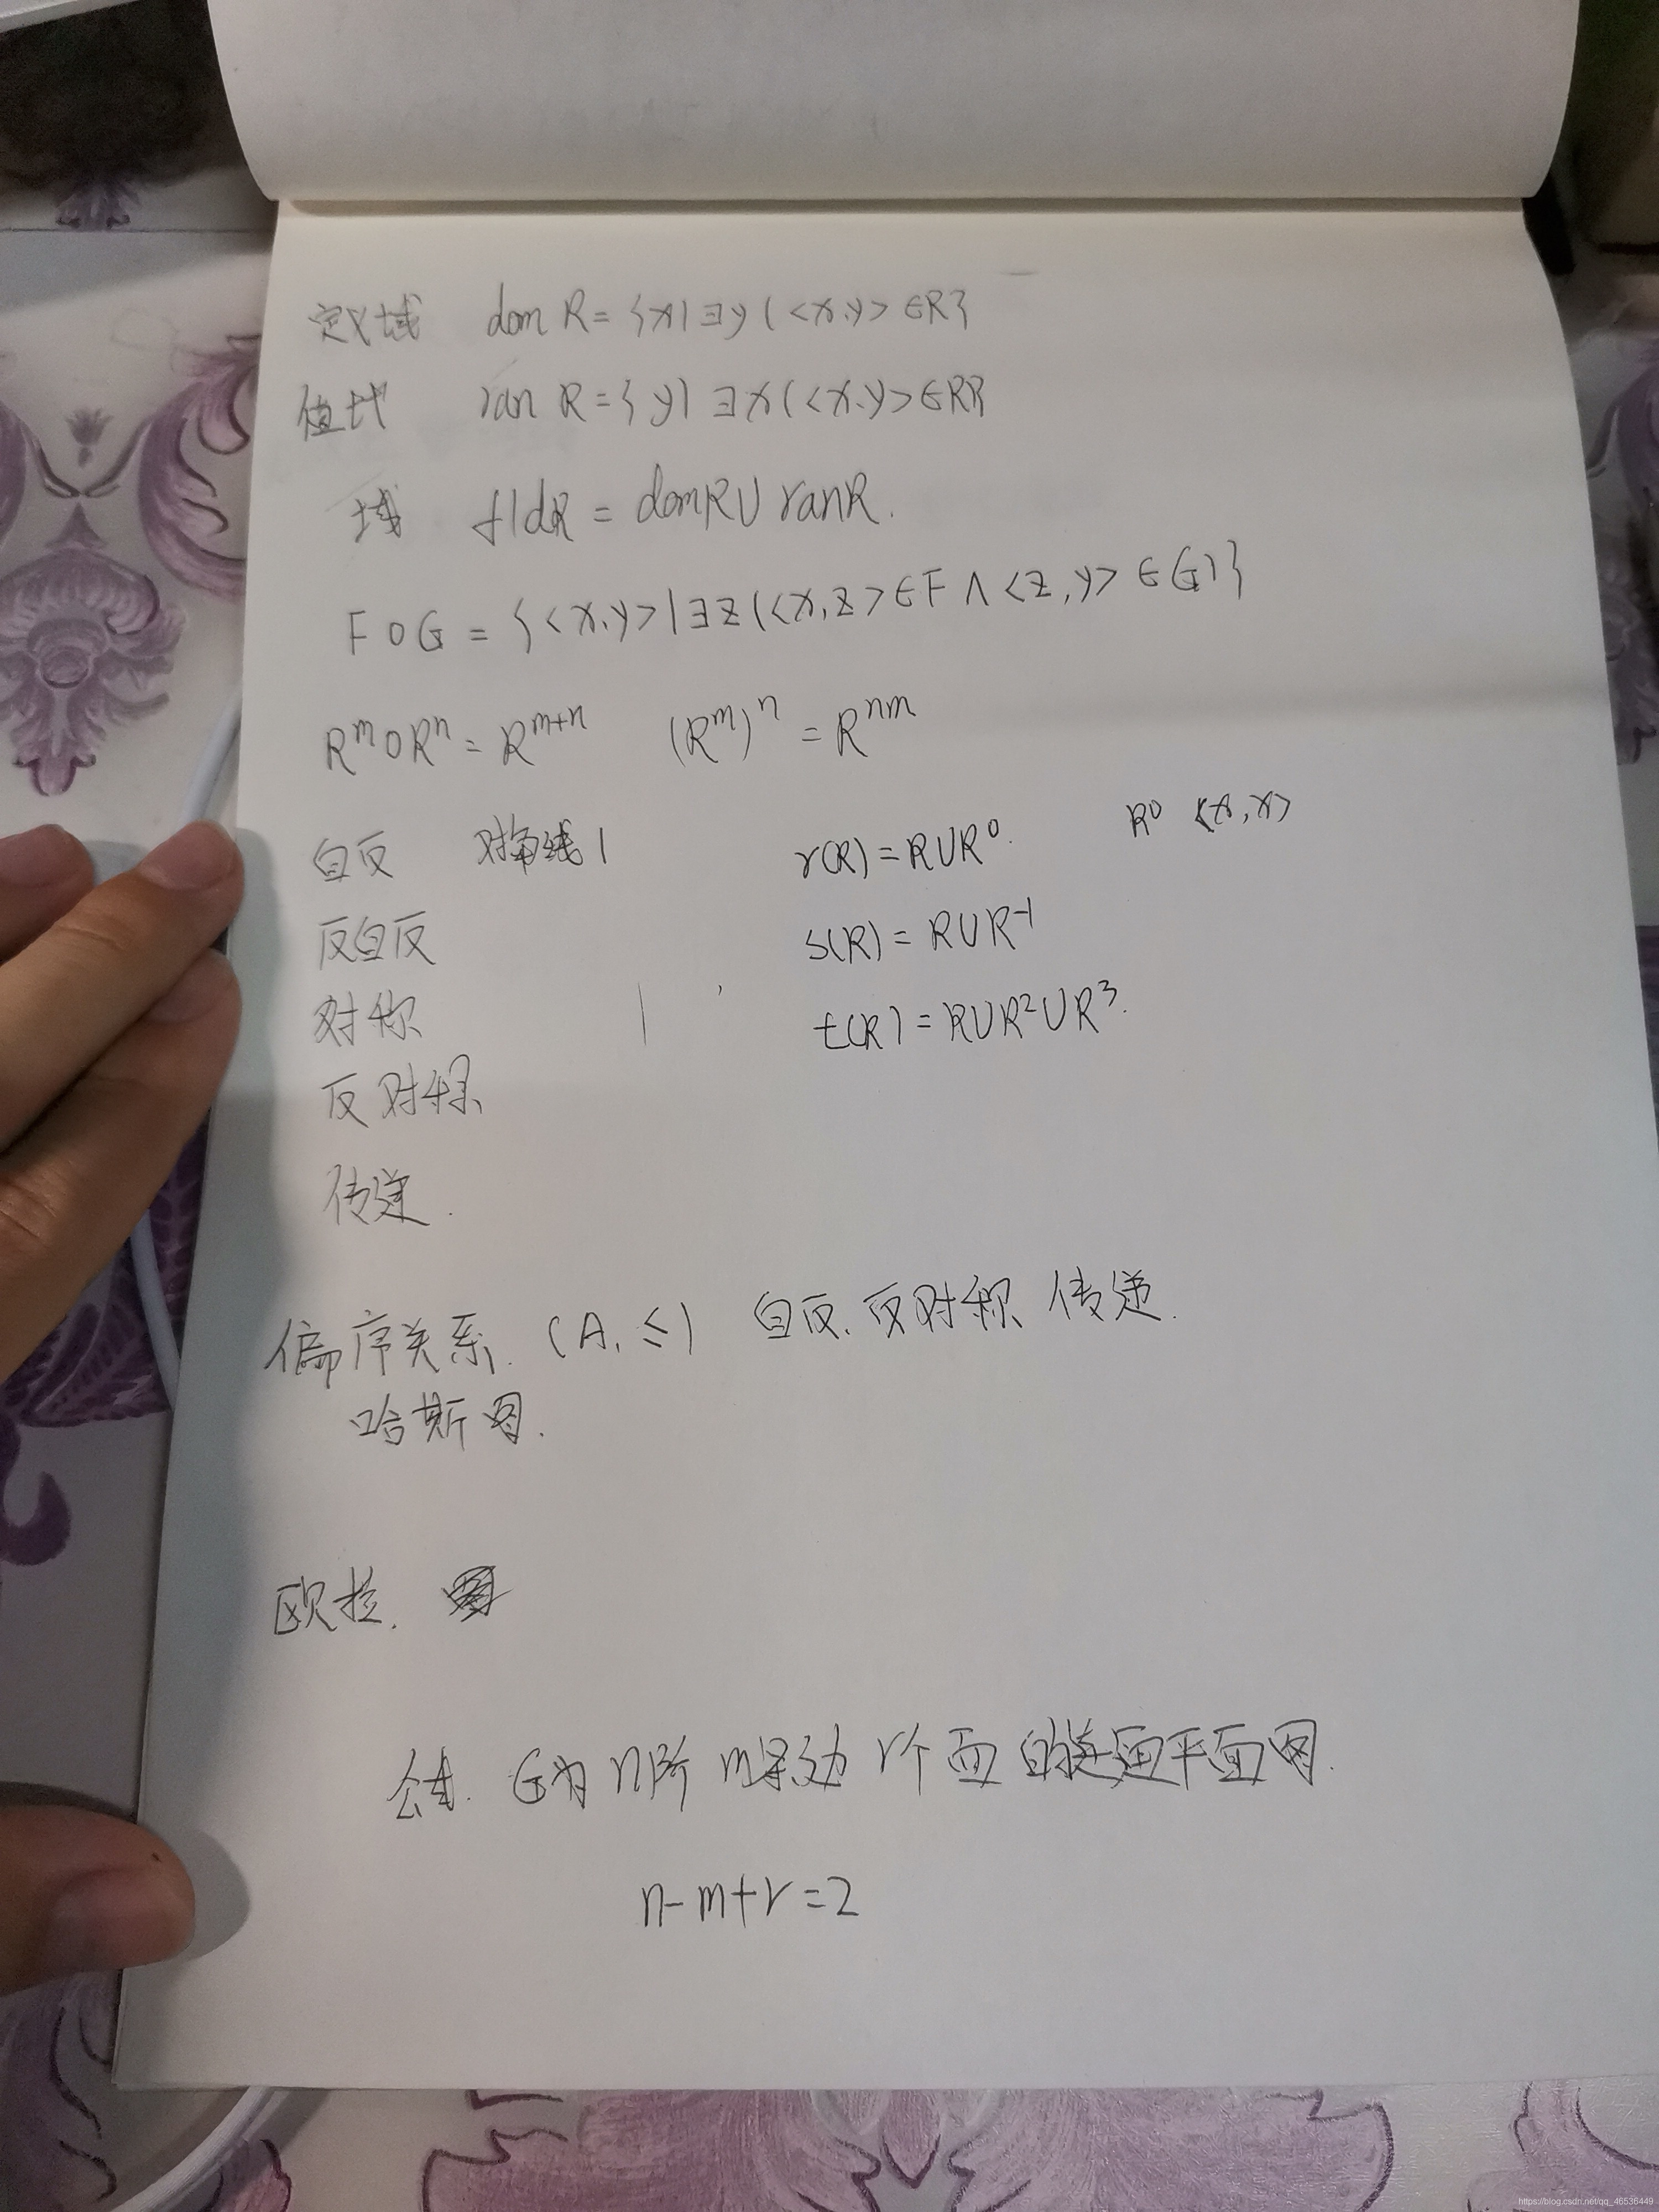 定义域 dom R = {x|∃y(<x.y>∈R}
值域 ran R = {y|∃x(<x.y>∈R}
域 fldR = domR∪ranR.
F o G = {<x.y>|∃z(<x,z>∈F∧<z,y>∈G)}
R^m o R^n = R^{m+n} (R^m)^n = R^{nm}
自反 对角线1 r(R) = R∪R^0. R^0 <x,x>
反自反 s(R) = R∪R^{-1}
对称 t(R) = R∪R^2∪R^3.
反对称
传递.
偏序关系. (A, ≤) 自反. 反对称 传递.
哈斯图.
欧拉.
公式. G为n阶 m条边 r个面的连通平面图.
n-m+r=2
https://blog.csdn.net/qq_46536449